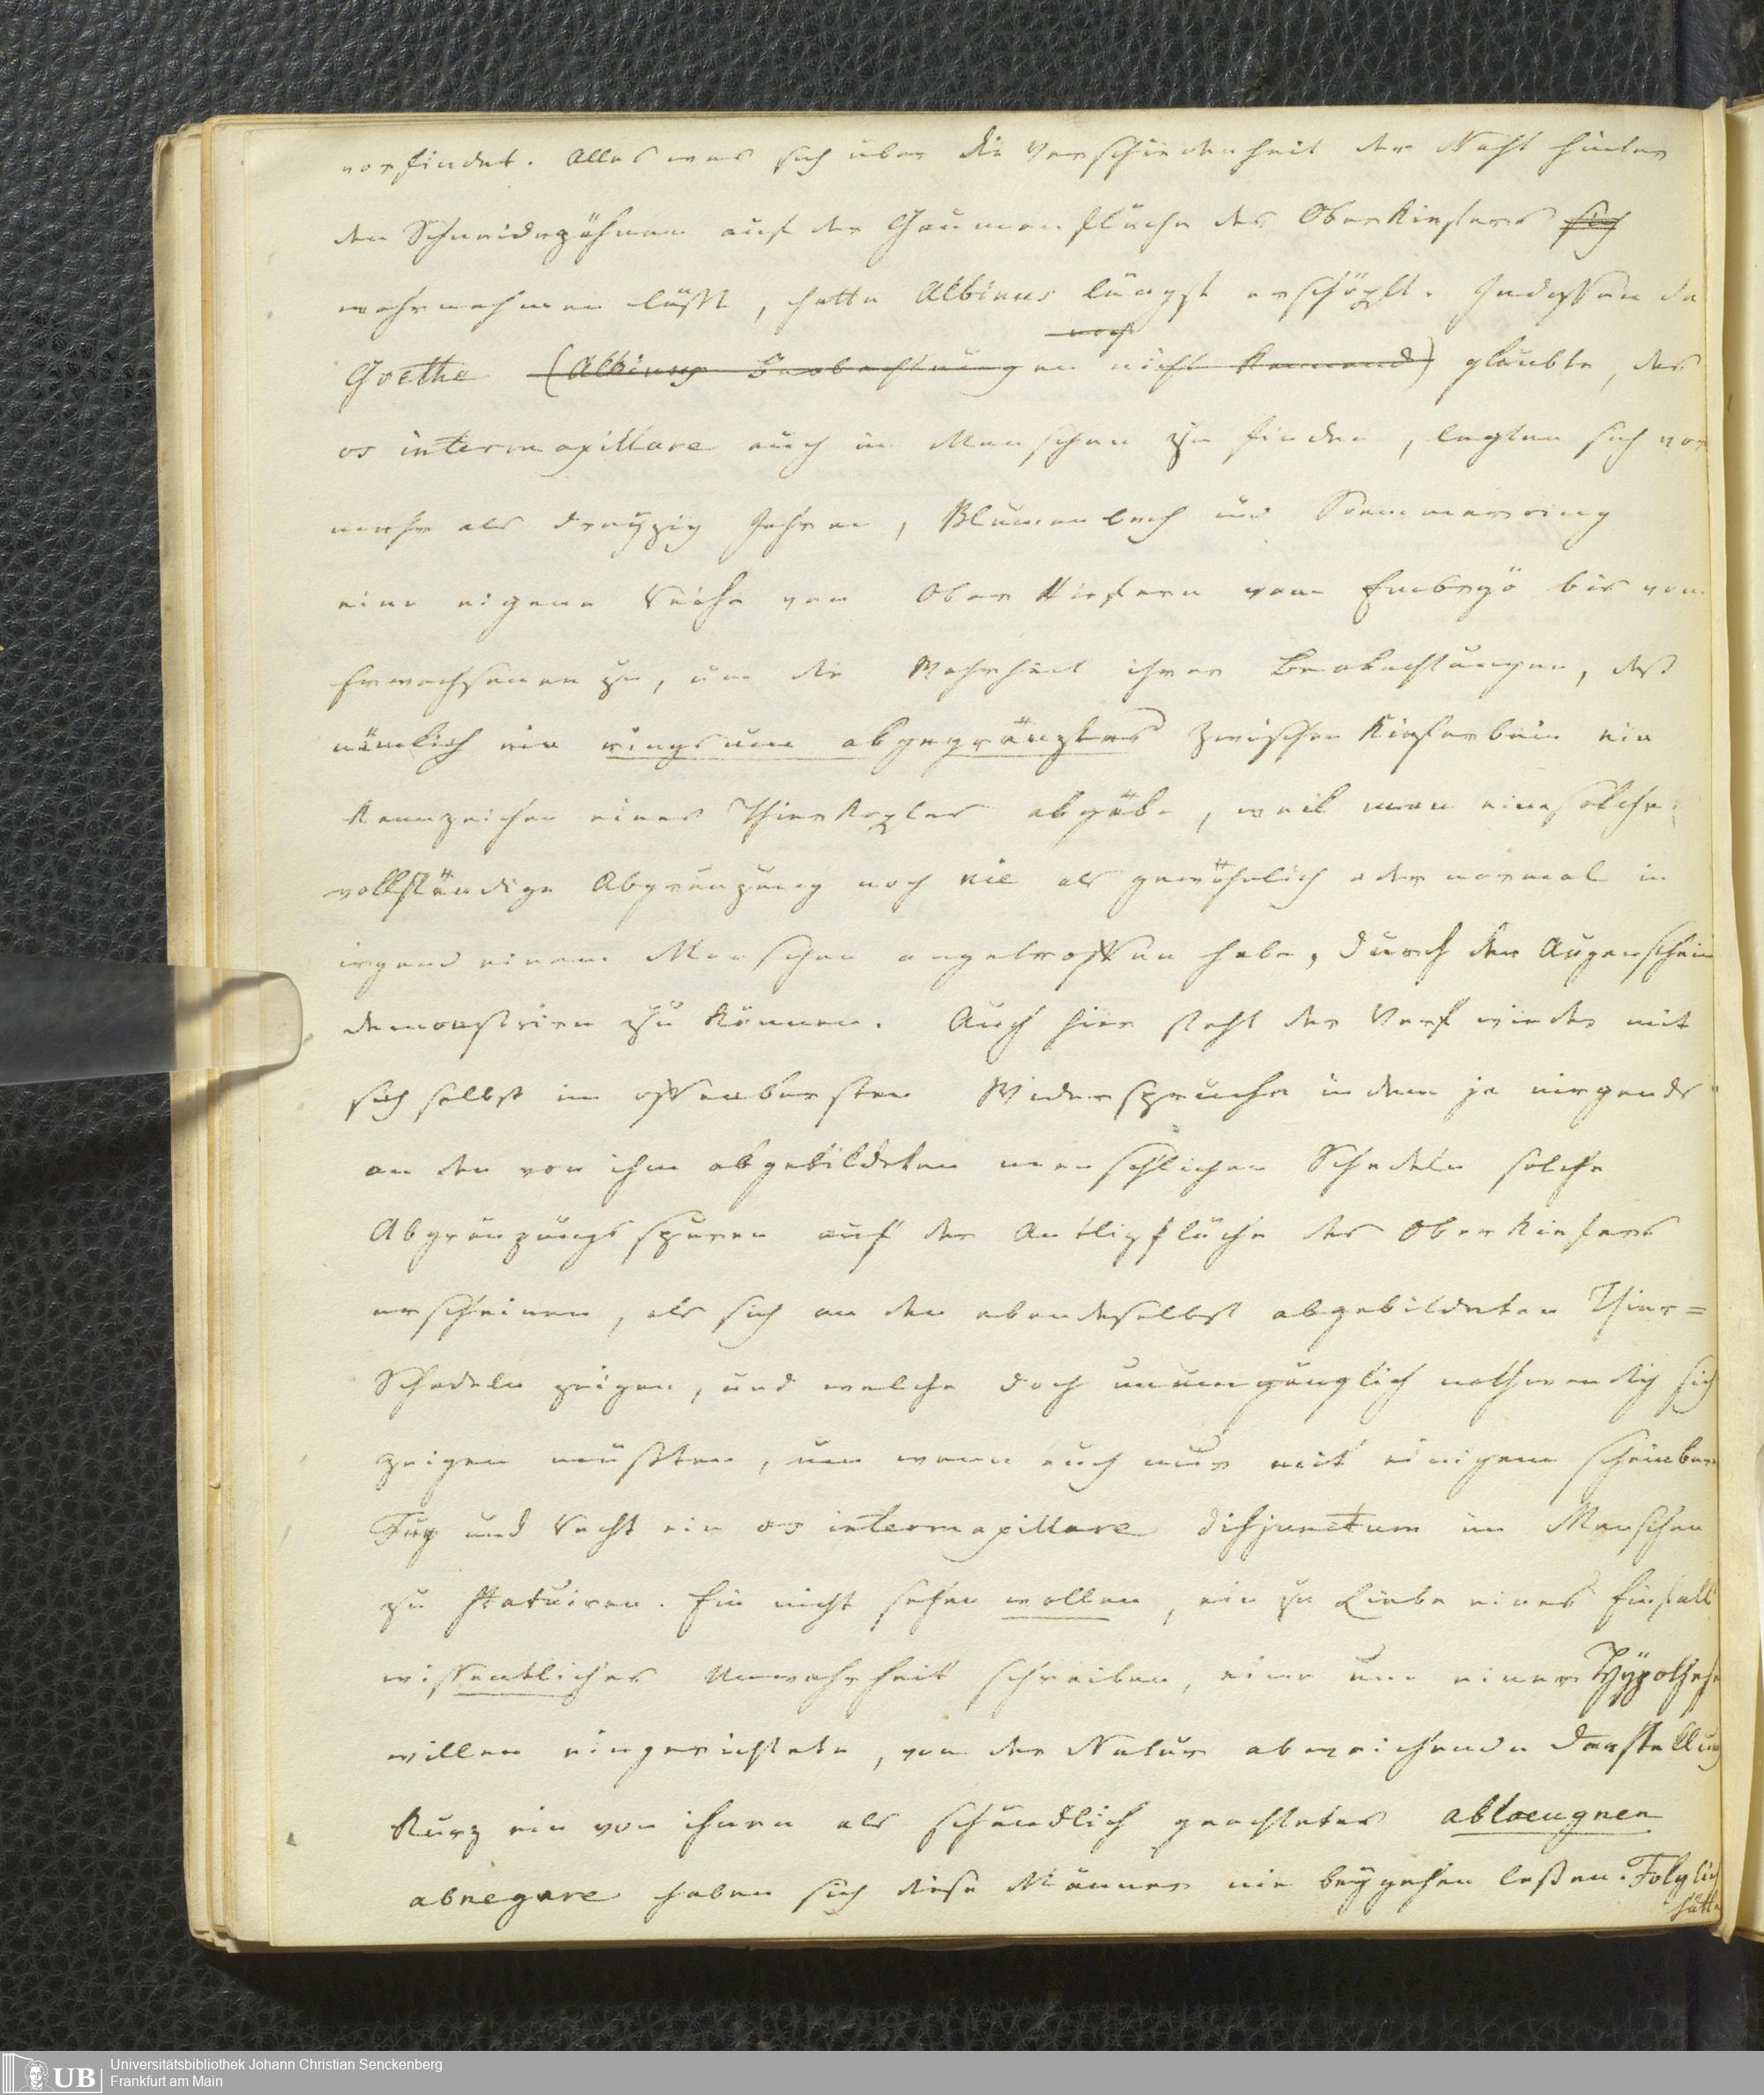 vorfindet. Alles was sich über die Verschiedenheit der Naht hinter
den Schneidezähnen auf der Gaumenfläche des Oberkiefers sich
wahrnehmen läßt, hatte Albinus längst erschöpft. Indessen da
noch
Goethe (Albinus Beobachtungen nicht kennend) glaubte, das
os intermaxillare auch im Menschen zu finden, legten sich vor
mehr als dreyzig Jahren, Blumenbach und Soemmerring
eine eigene Reihe von Oberkiefern vom Embryo bis vom
Erwachsenen zu, um die Wahrheit ihrer Beobachtungen, daß
nämlich ein ringsum abgegränztes Zwischen Kieferbein ein
Kennzeichen eines Thierkopfes abgäbe, weil man eine solche
vollständige Abgränzung noch nie als gewöhnlich oder normal in
irgend einem Menschen angetroffen habe, durch den Augenschein
demonstriren zu können. Auch hier steht der Verf wieder mit
sich selbst im offenbarsten Widerspruche indem ja nirgends
an den von ihm abgebildeten menschlichen Schedeln solche
Abgränzungsspuren auf der Antlizfläche des Oberkiefers
erscheinen, als sich an den ebendaselbst abgebildeten Thier=
Schedeln zeigen, und welche doch unumgänglich nothwendig sich
zeigen müßten, um wenn auch nur mit einigem scheinbaren
Fug und Recht ein os intermaxillare disjunctum im Menschen
zu statuiren. Ein nicht sehen wollen, ein zu Liebe eines Einfalls
wissentliches Unwahrheit schreiben, eine um einer Hypothese
willen eingerichtete, von der Natur abweichende Darstellung
Kurz ein von ihnen als schändlich geachtetes ablaeugnen
abnegare haben sich diese Männer nie beygehen laßen. Folglich
hätte
Universitätsbibliothek Johann Christian Senckenberg
UB Frankfurt am Main